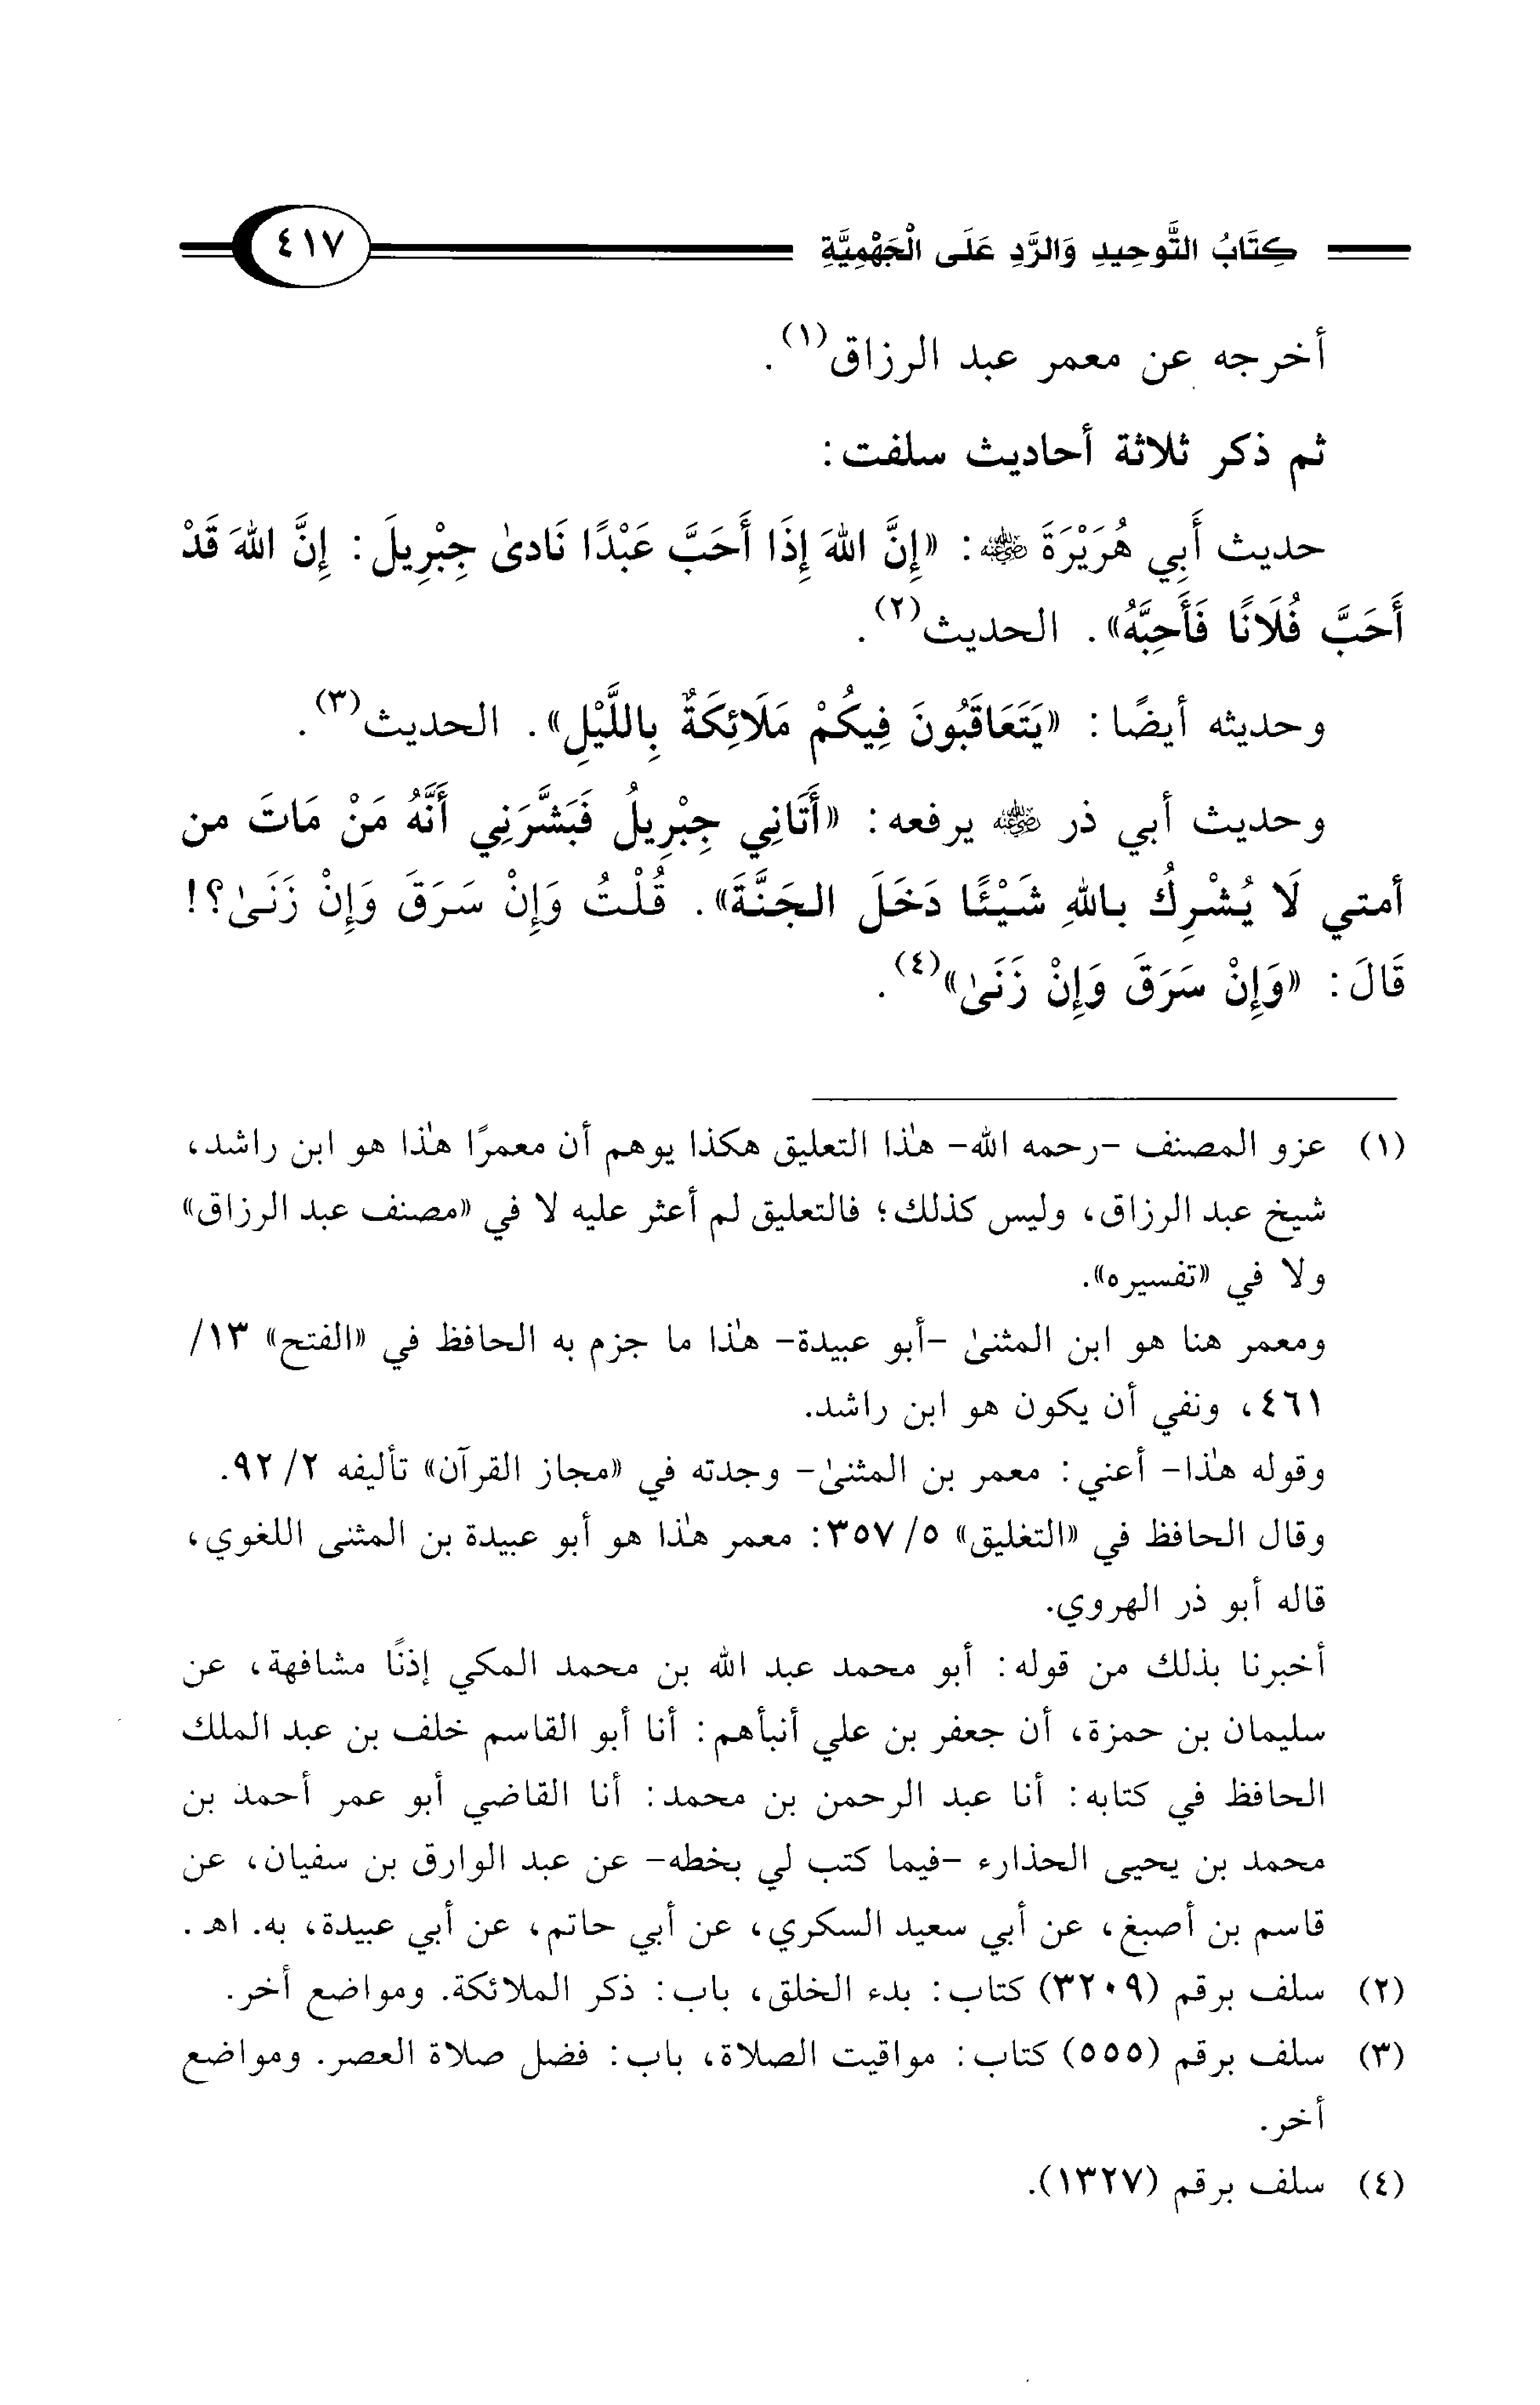 كِتَابُ التَّوحِيدِ وَالرَّدِ عَلَى الْجَهْمِيَّةِ ٤١٧
أخرجه عن معمر عبد الرزاق(١).
ثم ذكر ثلاثة أحاديث سلفت:
حديث أَبِي هُرَيْرَةَ رضي الله عنه: «إِنَّ اللهَ إِذَا أَحَبَّ عَبْدًا نَادىٰ جِبْرِيلَ: إِنَّ اللهَ قَدْ
أَحَبَّ فُلَانًا فَأَحِبَّهُ». الحديث(٢).
وحديثه أيضًا: «يَتَعَاقَبُونَ فِيكُمْ مَلَائِكَةٌ بِاللَّيْلِ». الحديث(٣).
وحديث أبي ذر رضي الله عنه يرفعه: «أَتَانِي جِبْرِيلُ فَبَشَّرَنِي أَنَّهُ مَنْ مَاتَ من
أمتي لَا يُشْرِكُ باللهِ شَيْئًا دَخَلَ الجَنَّةَ». قُلْتُ وَإِنْ سَرَقَ وَإِنْ زَنَىٰ؟!
قَالَ: «وَإِنْ سَرَقَ وَإِنْ زَنَىٰ»(٤).
(١) عزو المصنف -رحمه الله- هٰذا التعليق هكذا يوهم أن معمرًا هٰذا هو ابن راشد،
شيخ عبد الرزاق، وليس كذلك؛ فالتعليق لم أعثر عليه لا في «مصنف عبد الرزاق»
ولا في «تفسيره».
ومعمر هنا هو ابن المثنىٰ -أبو عبيدة- هٰذا ما جزم به الحافظ في «الفتح» ١٣/
٤٦١، ونفي أن يكون هو ابن راشد.
وقوله هٰذا- أعني: معمر بن المثنىٰ- وجدته في «مجاز القرآن» تأليفه ٢/ ٩٢.
وقال الحافظ في «التغليق» ٥/ ٣٥٧: معمر هٰذا هو أبو عبيدة بن المثنى اللغوي،
قاله أبو ذر الهروي.
أخبرنا بذلك من قوله: أبو محمد عبد الله بن محمد المكي إذنًا مشافهة، عن
سليمان بن حمزة، أن جعفر بن علي أنبأهم: أنا أبو القاسم خلف بن عبد الملك
الحافظ في كتابه: أنا عبد الرحمن بن محمد: أنا القاضي أبو عمر أحمد بن
محمد بن يحيى الحذارء -فيما كتب لي بخطه- عن عبد الوارق بن سفيان، عن
قاسم بن أصبغ، عن أبي سعيد السكري، عن أبي حاتم، عن أبي عبيدة، به. اهـ.
(٢) سلف برقم (٣٢٠٩) كتاب: بدء الخلق، باب: ذكر الملائكة. ومواضع أخر.
(٣) سلف برقم (٥٥٥) كتاب: مواقيت الصلاة، باب: فضل صلاة العصر. ومواضع
أخر.
(٤) سلف برقم (١٣٢٧).